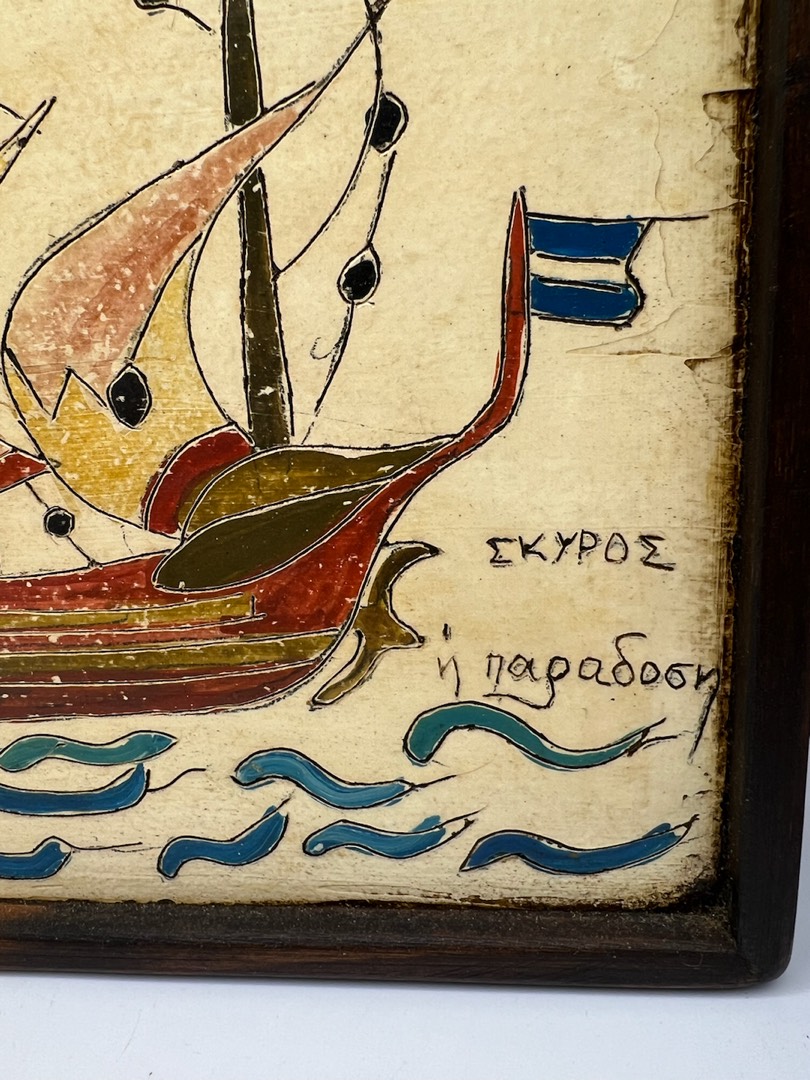 ΣΚΥΡΟΣ
ἡ παραδοση